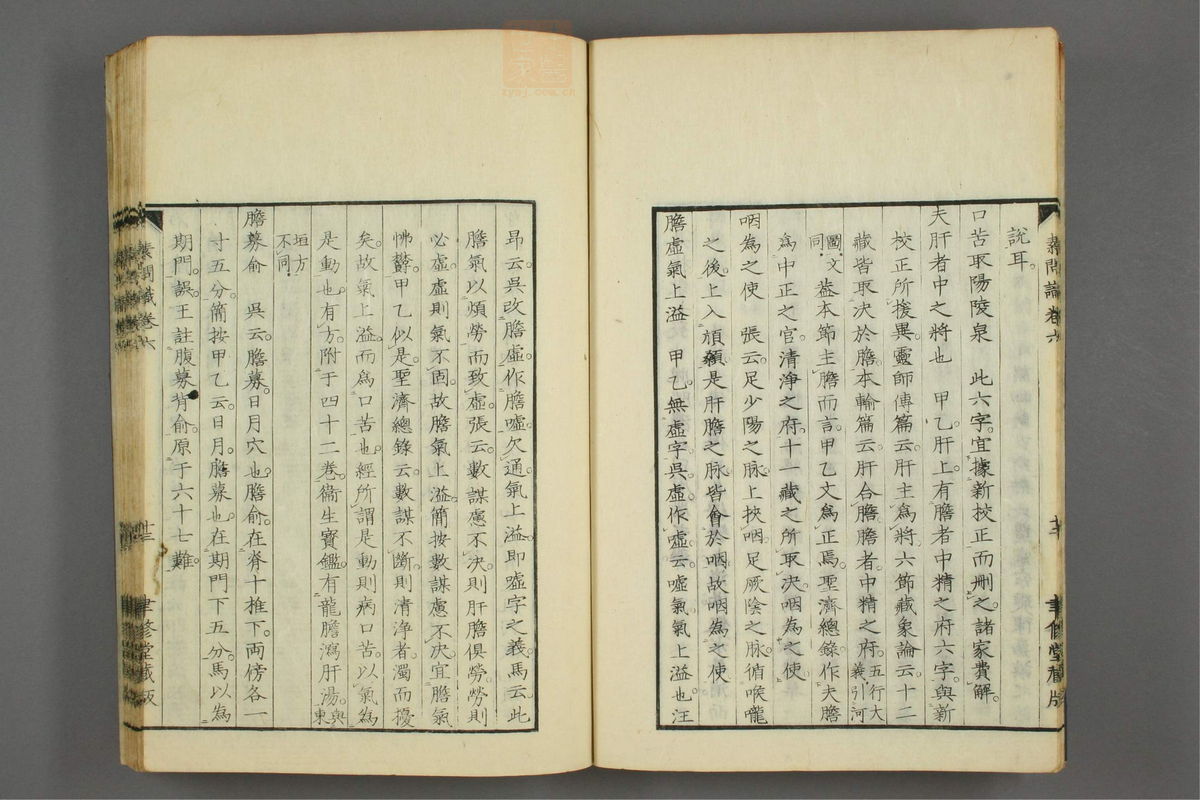 素問識卷六
聿修堂藏版
說耳
口苦取陽陵泉 此六字宜據新校正而刪之諸家費解
夫肝者中之將也 甲乙肝上有膽者中精之府六字與新
校正所援異靈師傳篇云肝主為將六節藏象論云十二
藏皆取決於膽本輸篇云肝合膽膽者中精之府五行大義引河
圖文同葢本節主膽而言甲乙文為正焉聖濟總錄作夫膽
為中正之官清淨之府十一藏之所取決咽為之使
咽為之使 張云足少陽之脉上挾咽足厥陰之脉循喉嚨
之後上入頏顙是肝膽之脉皆會於咽故咽為之使
膽虛氣上溢 甲乙無虛字吳虛作噓云噓氣氣上溢也汪
昂云吳改膽虛作膽噓欠通氣上溢即噓字之義馬云此
膽氣以煩勞而致虛張云數謀慮不決則肝膽俱勞勞則
必虛虛則氣不固故膽氣上溢簡按數謀慮不決宜膽氣
怫鬱甲乙似是聖濟總錄云數謀不斷則清淨者濁而擾
矣故氣上溢而為口苦也經所謂是動則病口苦以氣為
是動也有方附于四十二卷衞生寶鑑有龍膽瀉肝湯與東
垣方不同
膽募俞 吳云膽募日月穴也膽俞在脊十椎下兩傍各一
寸五分簡按甲乙云日月膽募也在期門下五分馬以為
期門誤王註腹募背俞原于六十七難
素問識卷六
聿修堂藏版